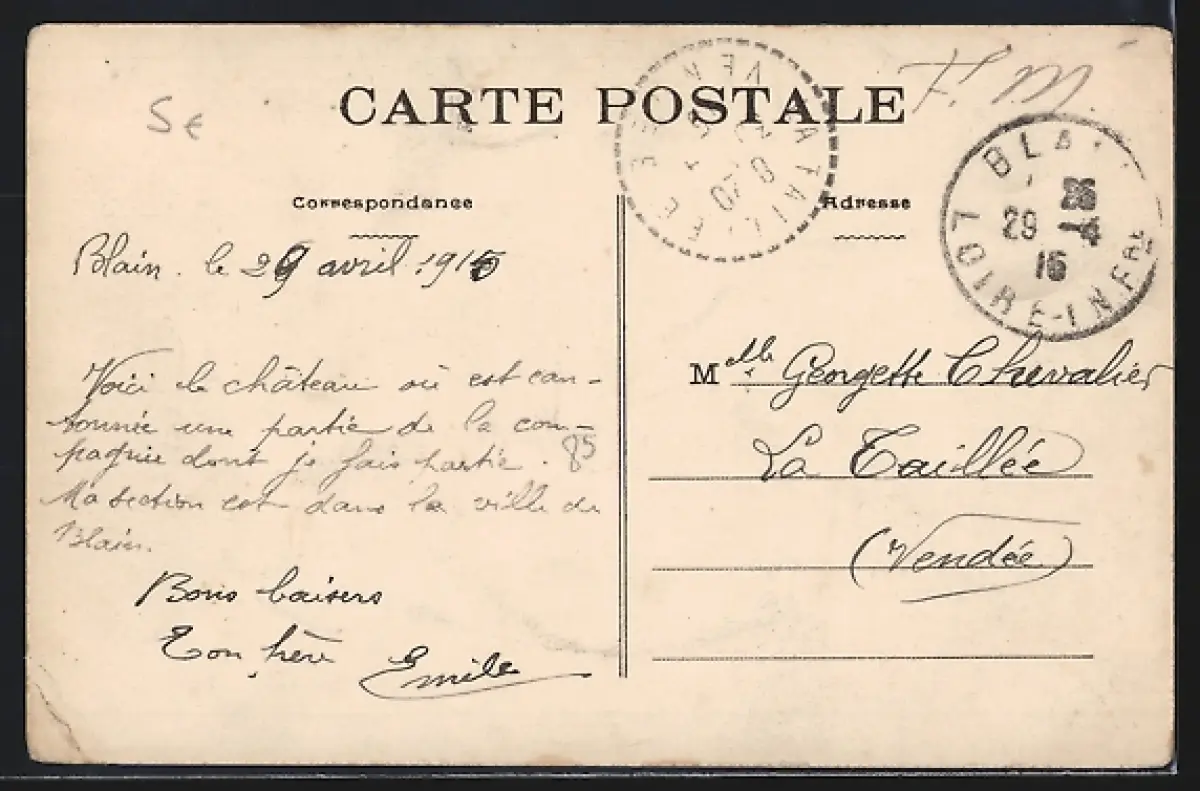 CARTE POSTALE
F. M
Correspondance
Adresse
BLAI
29 4
15
LOIRE-INFRE
LA TAILLEE
VEN
Blain. le 29 avril 1915
Voici le château où est can-
tonnée une partie de la com-
pagnie dont je fais partie.
85
Ma section est dans la ville de
Blain.
Bons baisers
Ton frère Emile
Mlle Georgette Chevalier
La Taillée
(Vendée)